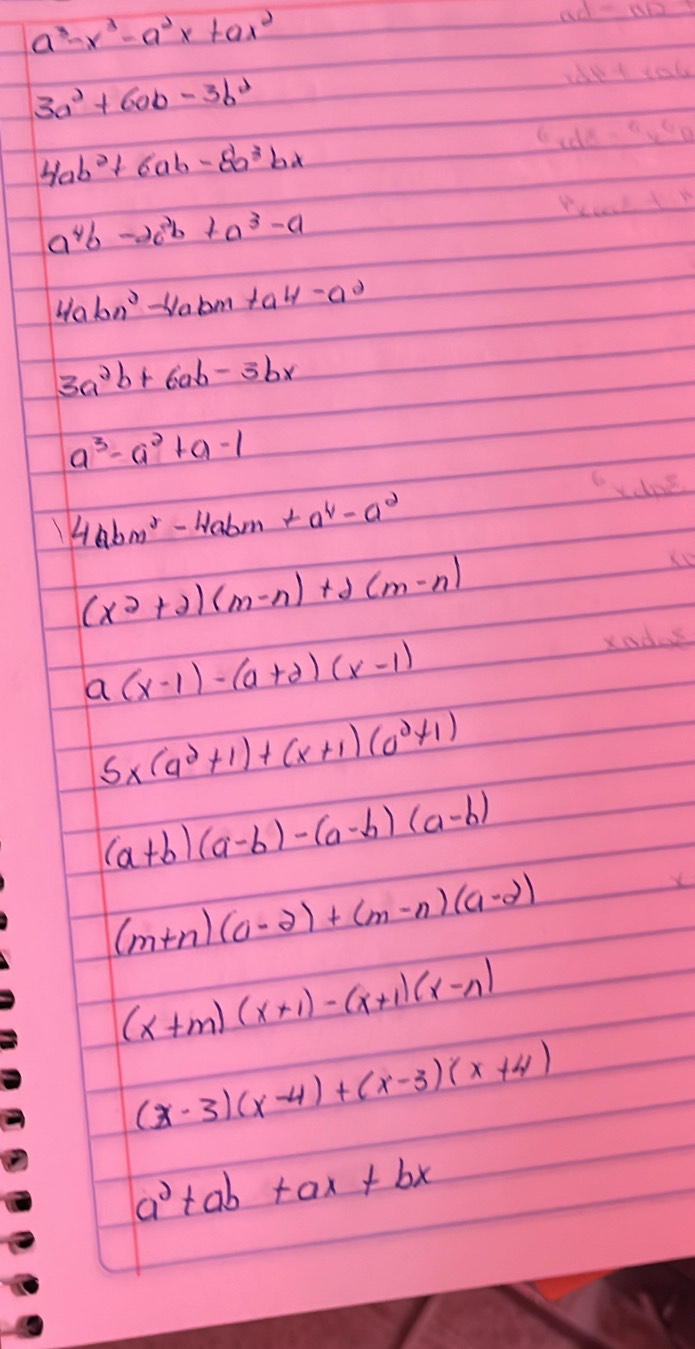 a³-x³-a²x+ax²
3a²+6ab-3b²
4ab²+6ab-8a³bx
a⁴b-2a²b+a³-a
4abn²-4abm+a4-a²
3a²b+6ab-3bx
a³-a²+a-1
4abm²-4abm+a⁴-a²
(x2+2)(m-n)+2(m-n)
a(x-1)-(a+2)(x-1)
5x(a²+1)+(x+1)(a²+1)
(a+b)(a-b)-(a-b)(a-b)
(m+n)(a-2)+(m-n)(a-2)
(x+m)(x+1)-(x+1)(x-n)
(x-3)(x-4)+(x-3)(x+4)
a²+ab+ax+bx